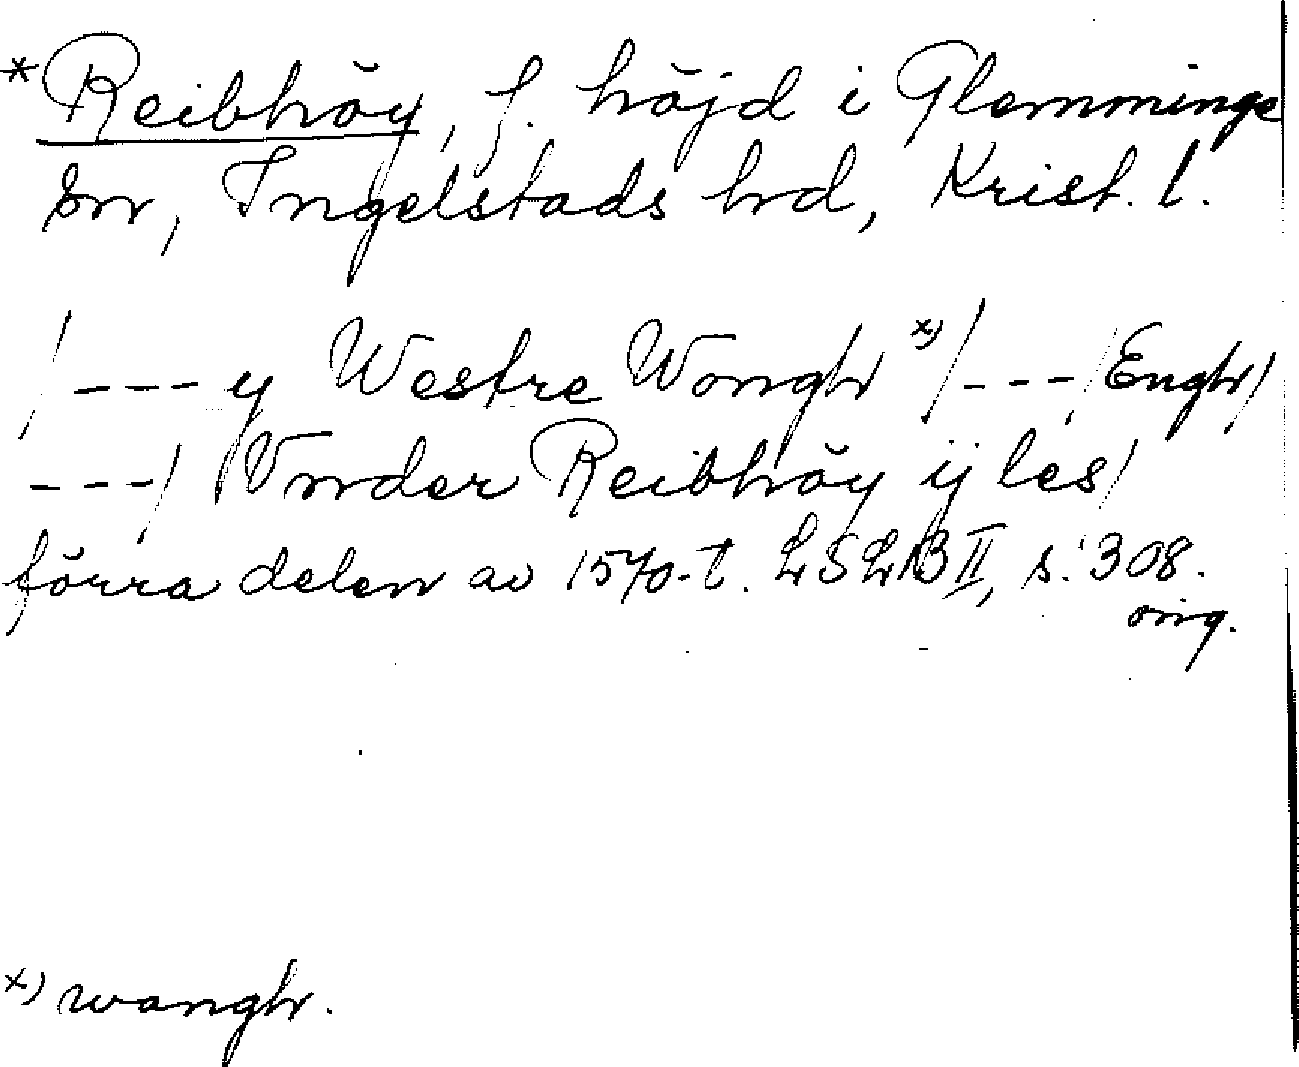 *Reibhöy, f. höjd i Glemminge
sn, Ingelstads hd, Krist. l.
/---y Westre Wongh x)/---/Engh/
---/ Vnder Reibhöy ij les/
förra delen av 1570-t. LSLB II, s. 308.
orig.
x) wangh.